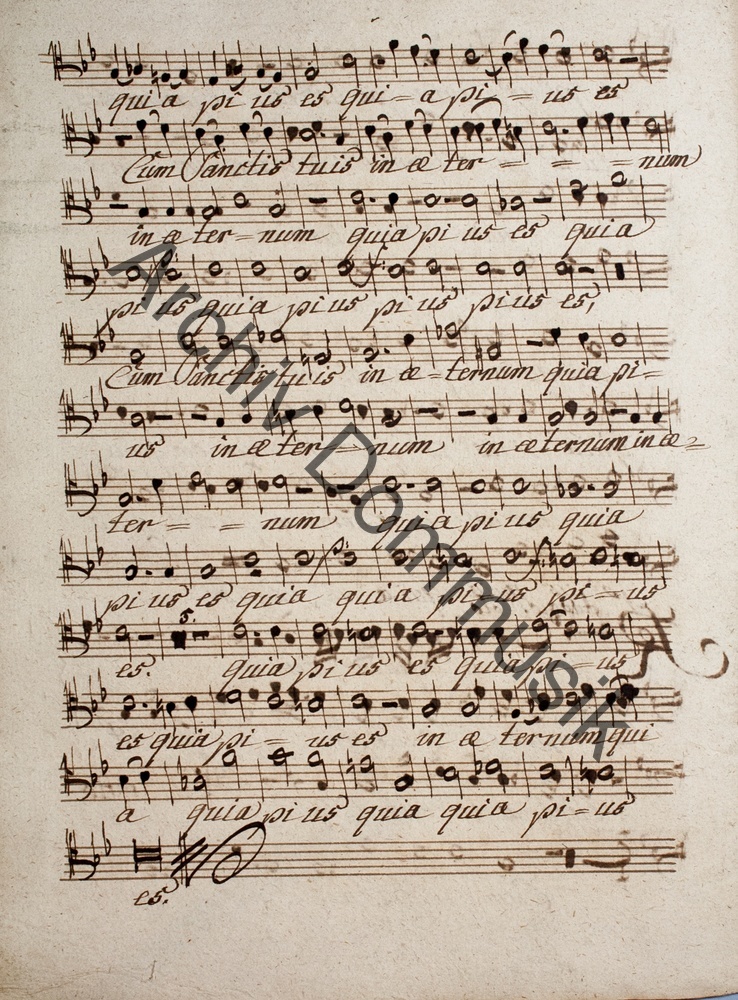 quia pi us es qui=a pi-=us es
Cum Sanctis tuis in æ ter= = =num
in æ ter=num quia pi us es quia
pi us quia pi us pi us pi us es,
Cum Sanctis tuis in æ=ternum quia pi=
us in æ ter=num in æternum in æ=
ter= =num quia pi us quia
p.
pi us es quia qui a pi=us pi=us
5.
es. quia pi us es quia pi=us
es quia pi=us es in æ ternum qui
a quia pi us quia quia pi=us
es.
Archiv Dommusik